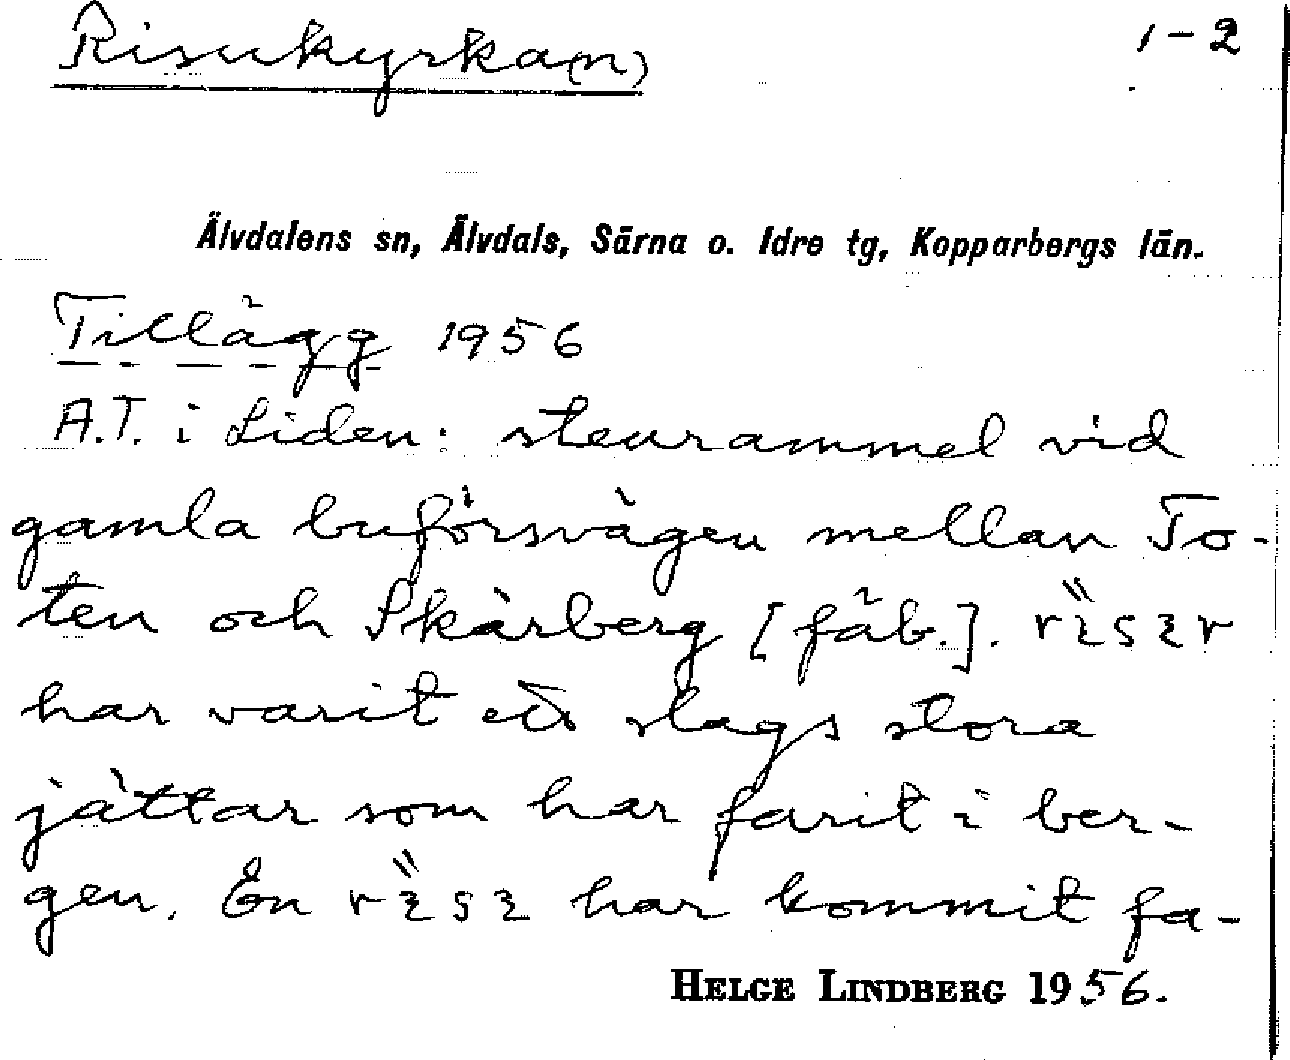 Risukyrka(n) 1-2
Älvdalens sn, Älvdals, Särna o. Idre tg, Kopparbergs län.
Tillägg 1956
A.T. i Liden: stenrammel vid
gamla buförsvägen mellan To-
ten och Skärberg [fäb.].
har varit ett slags stora
jättar som har farit i ber-
gen. En har kommit fa-
HELGE LINDBERG 1956.